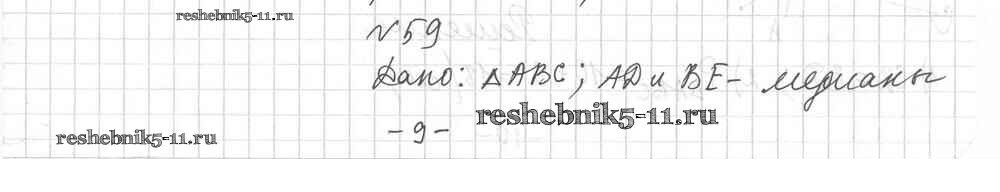 reshebnik5-11.ru
№59
Дано: △ABC; AD и BE- медианы
reshebnik5-11.ru
-9-
reshebnik5-11.ru